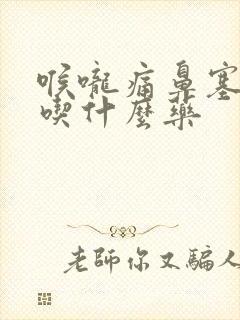 喉嚨痛鼻塞
喫什麼藥
老師你又騙人